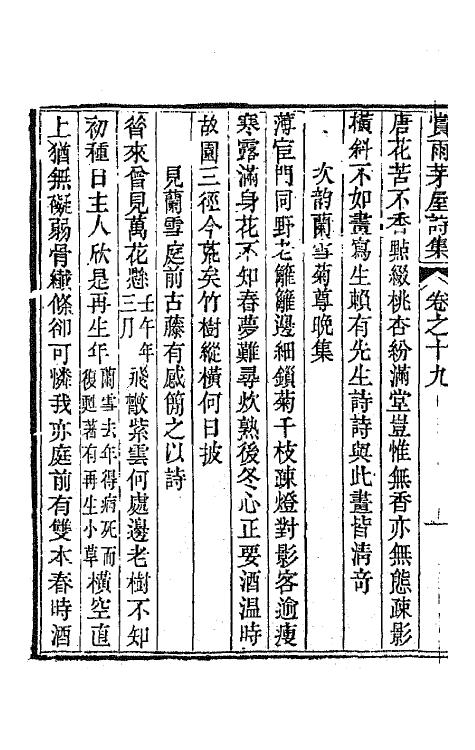 賞雨茅屋詩集 卷之十九 一
唐花苦不香點綴桃杏紛滿堂豈惟無香亦無態疎影
橫斜不如畫寫生賴有先生詩詩與此畫皆清奇
次韵蘭雪菊尊晚集
薄宦門同野老籬籬邊細鎖菊千枝疎燈對影客逾瘦
寒露滿身花不知春夢難尋炊熟後冬心正要酒溫時
故園三徑今荒矣竹樹縱橫何日披
見蘭雪庭前古藤有感償之以詩
昝來曾見萬花懸壬午年三月飛散紫雲何處邊老樹不知
初種日主人欣是再生年蘭雪去年得病死而復甦著有再生小草橫空直
上猶無礙弱骨纖條卻可憐我亦庭前有雙本春時酒